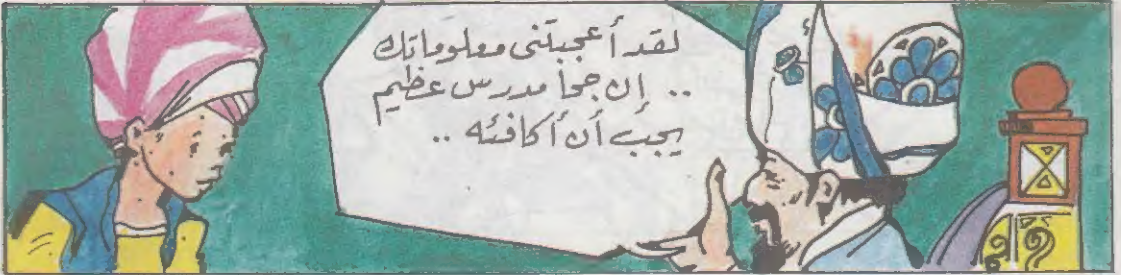 لقد أعجبتنى معلوماتك
.. إن جحا مدرس عظيم
يجب أن أكافئه ..